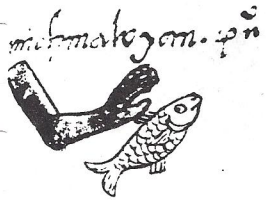 michmaloyan. pũ